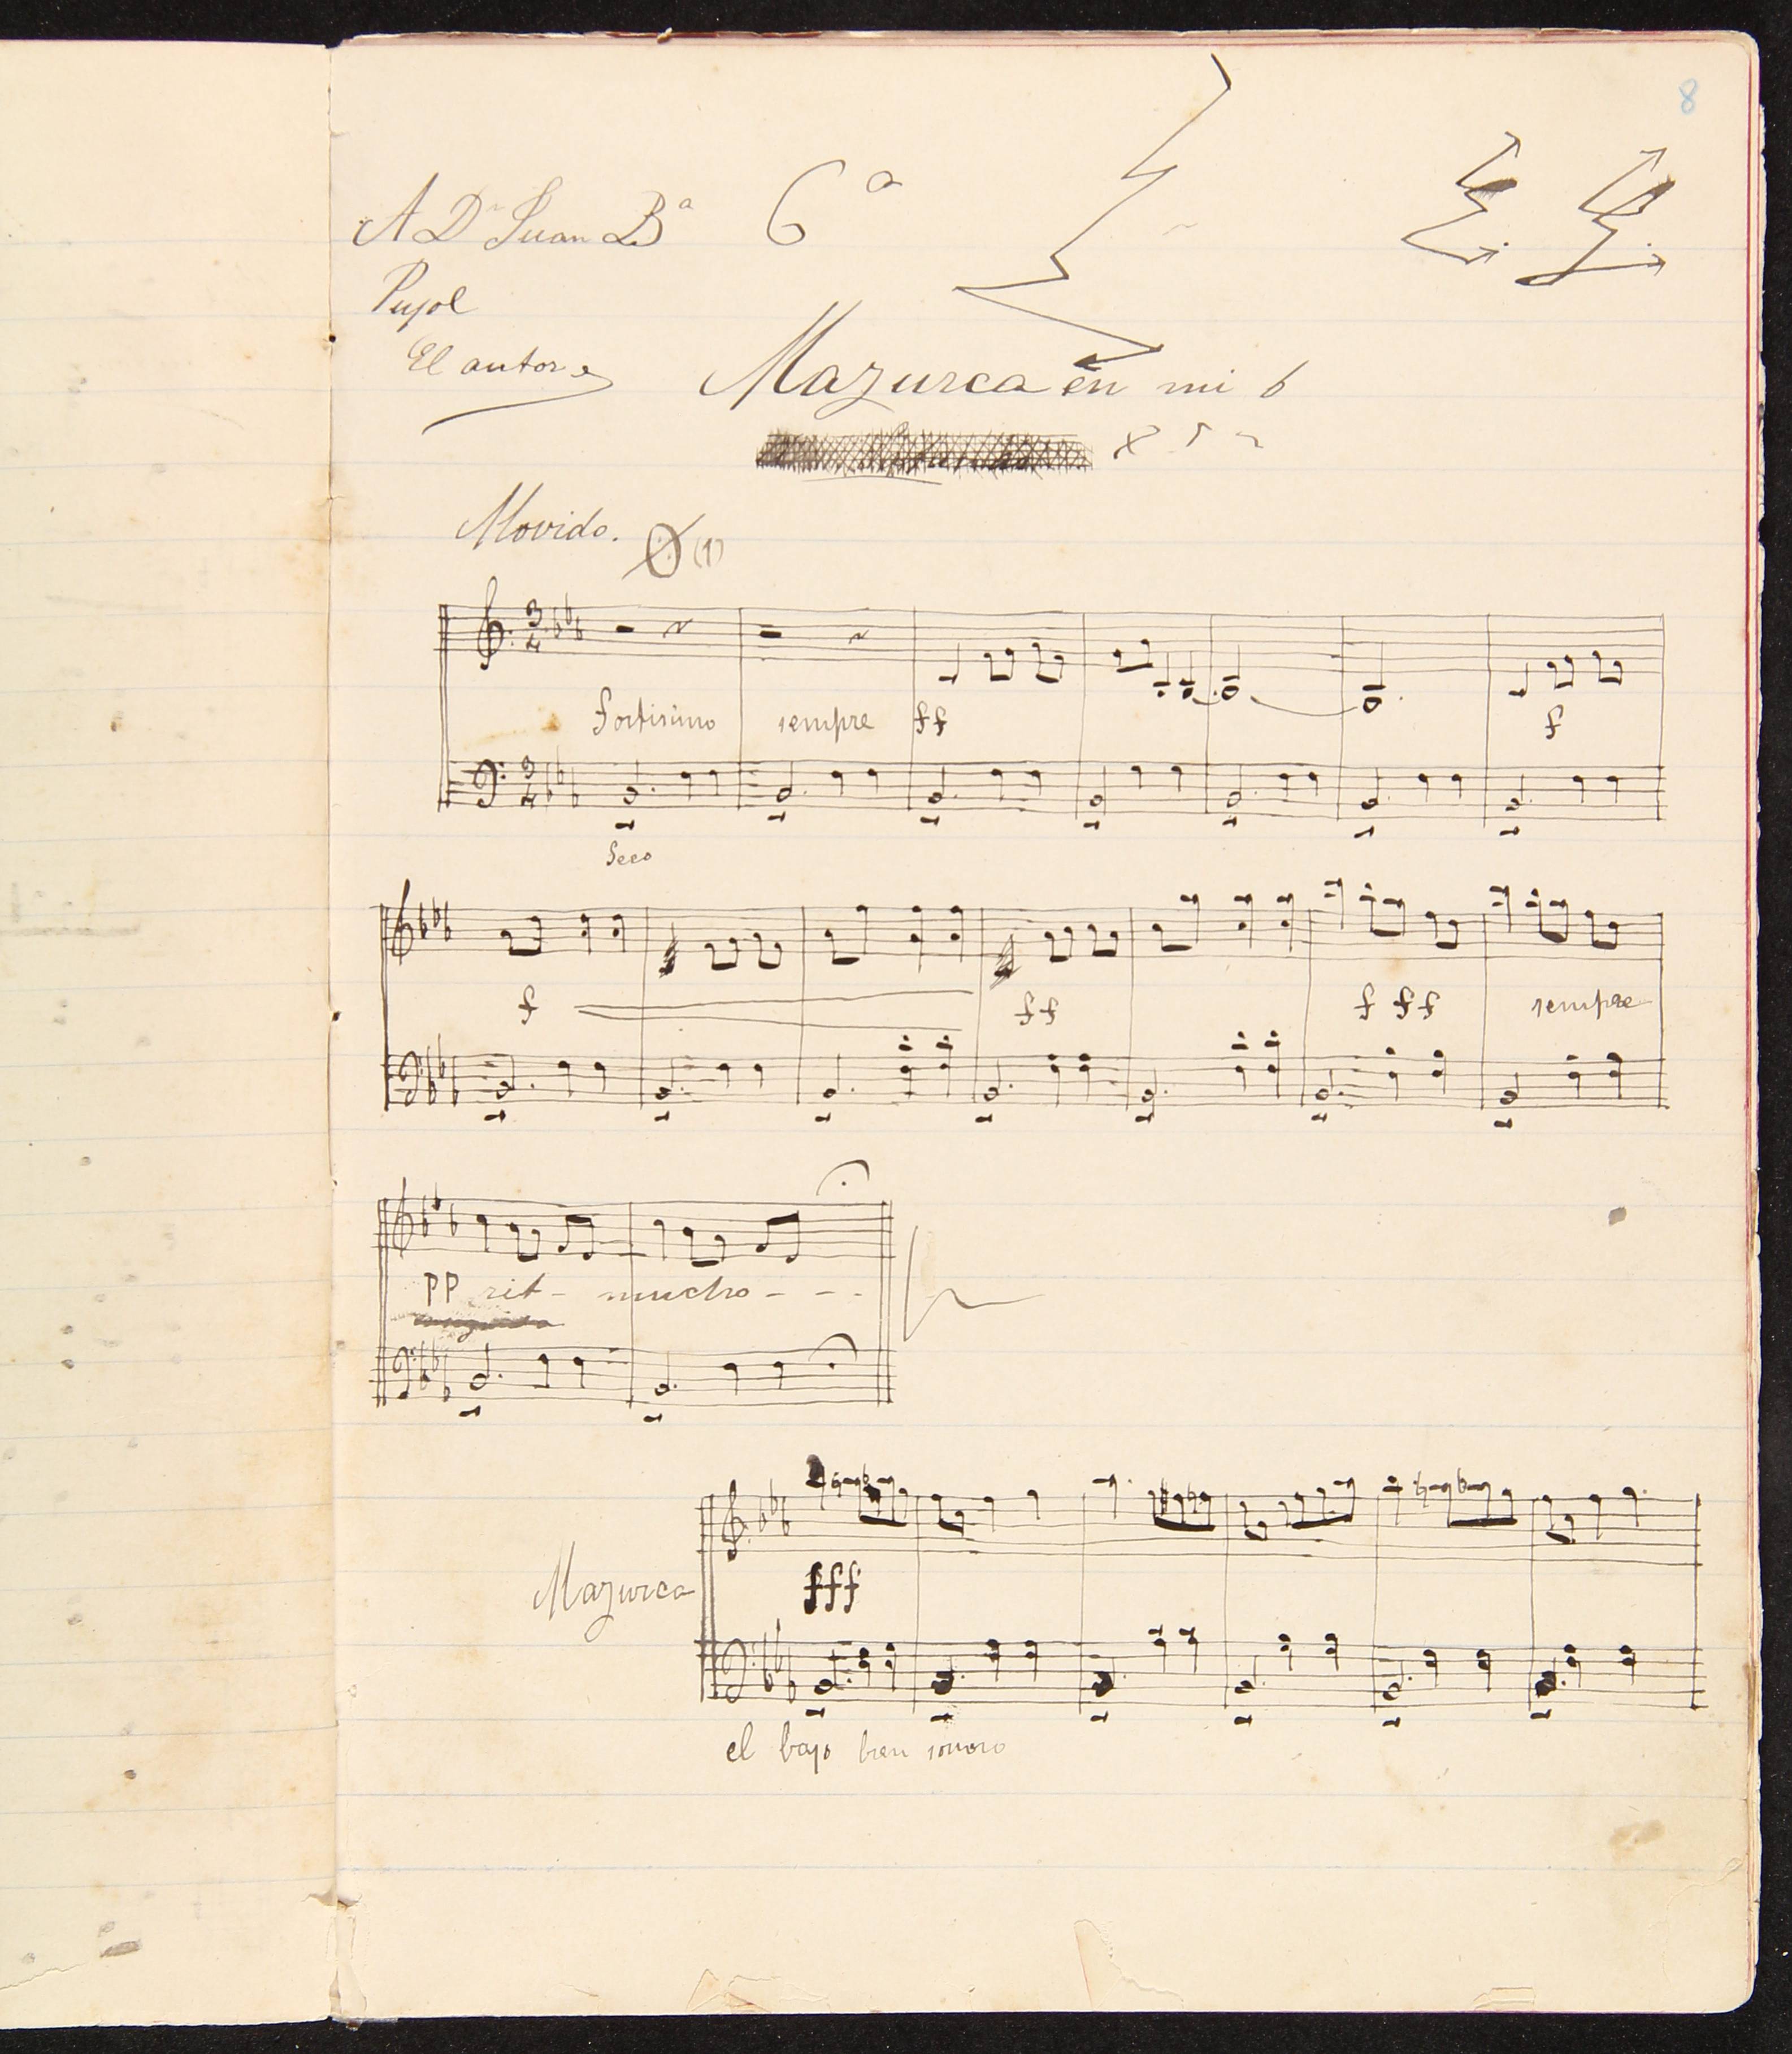 8
A Dⁿ Juan Bª
6ª
Pujol
El autor
Mazurca en mi b
Movido. (1)
fortisimo sempre ff f
Seco
f ff f ff sempre
pp rit - mucho - - -
Mazurca
fff
el bajo bien sonoro